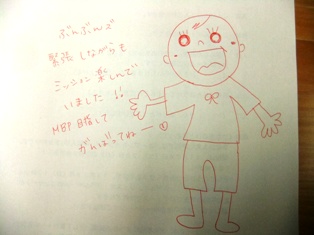 ぶんぶんで
緊張しながらも
ミッション楽しんで
いました!!
MBP目指して
がんばってねー